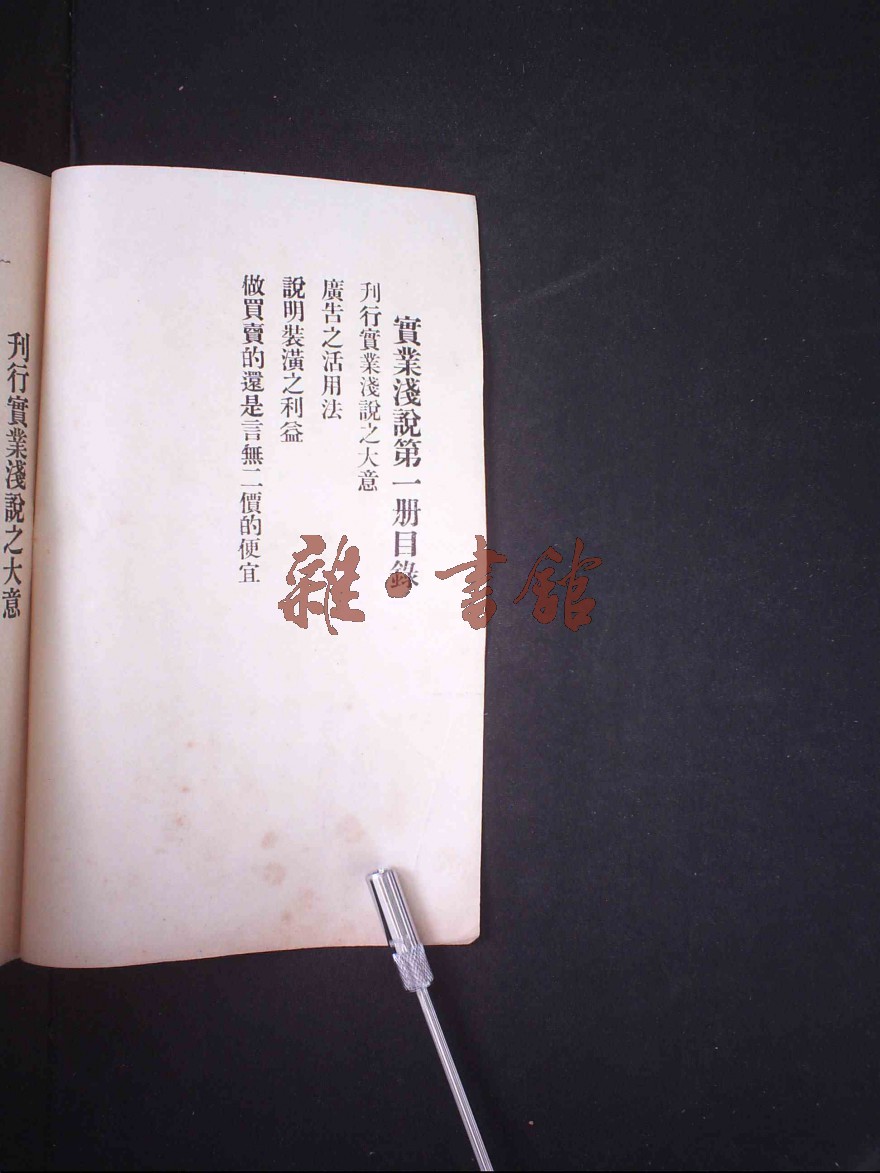 實業淺說第一册目錄
刊行實業淺說之大意
廣告之活用法
說明裝潢之利益
做買賣的還是言無二價的便宜
刊行實業淺說之大意
雜·書館